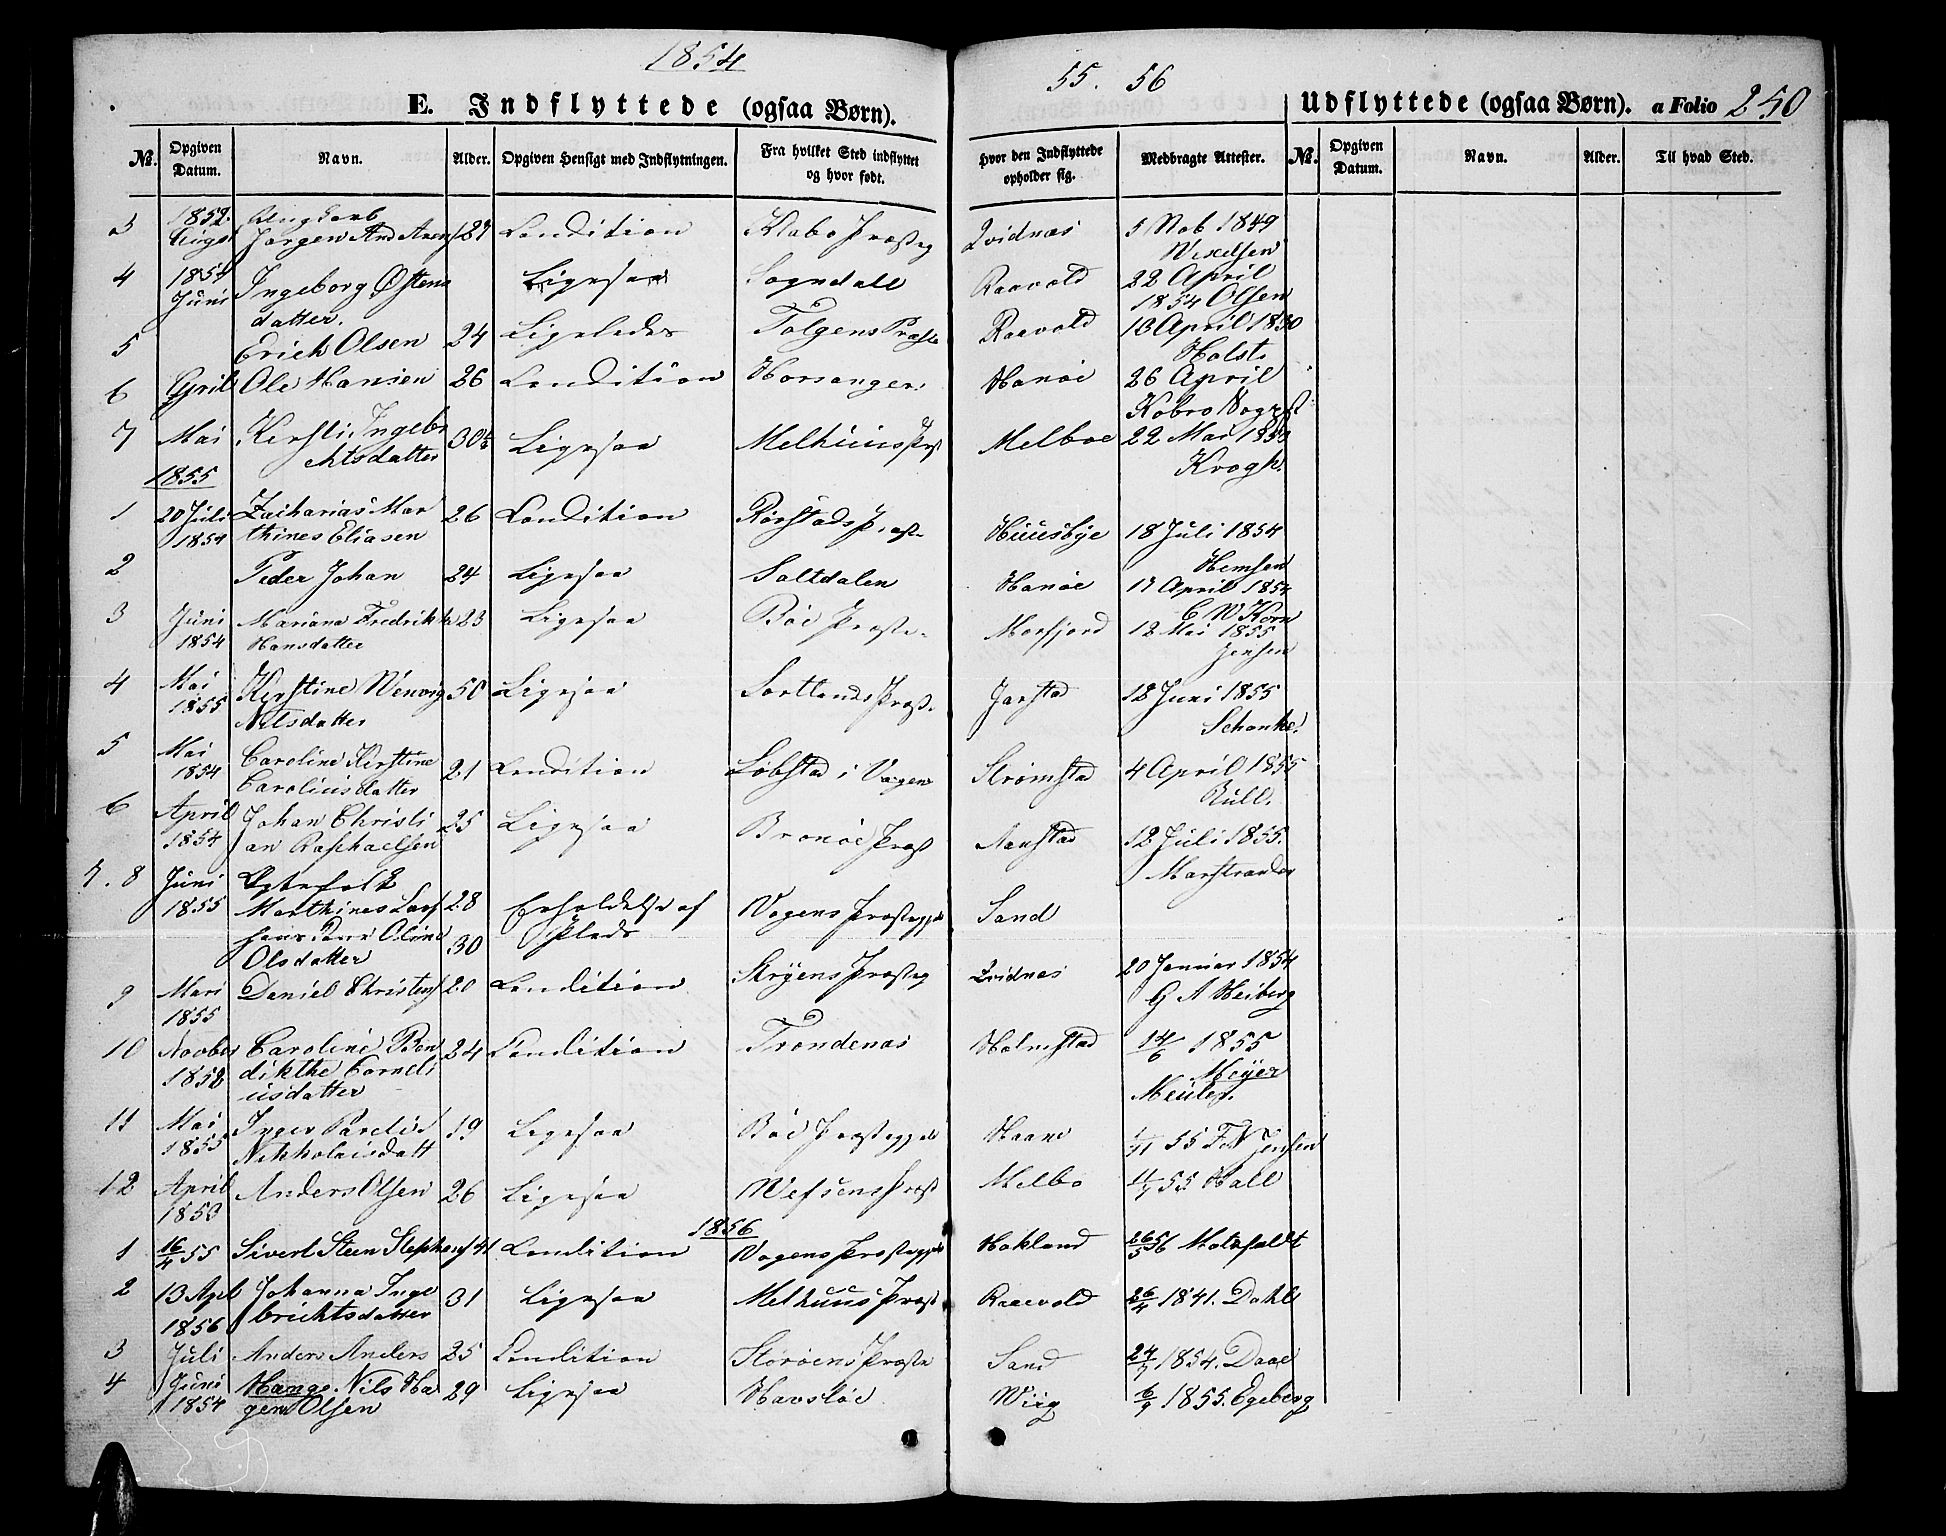 1854
55. 56
E. Indflyttede (ogsaa Børn).
Udflyttede (ogsaa Børn). a Folio 250
No. Opgiven Datum. Navn. Alder. Opgiven Hensigt med Indflytningen. Fra hvilket Sted indflyttet og hvor født. Hvor den Indflyttede opholder sig. Medbragte Attester. No. Opgiven Datum. Navn. Alder. Til hvad Sted.
3 1852 August Ungkarl Jørgen And 27 Condition Klæbo Præsteg Qvidnæs 5 Nob 1849 Wexelsen
4 1854 Juni Ingeborg Østens datter. Ligesaa Sogndall Raavold 22 April 1854 Olsen
5 Erich Olsen 24 Ligeledes Tolgens Præste Raavold 10 April Holst.
6 April Ole Hansen 26 Condition Hanøe 26 April Kobro
7 Mai Kirsti Ingebr ichtsdatter 30 Ligesaa Melhuus Præst Melboe 22 Mai Krogh.
1855
1 20 Juli 1854 Zacharias Mar thines Eliasen 26 Condition Rørstads Præst. Huusbye 18 Juli 1854 Hemsen
2 Peder Johan 24 Ligesaa Saltdalen Hanøe 17 April 1854 C W Korn
3 Juni 1854 Mariana Fredrikke Hansdatter 23 Ligesaa Bøe Præste. Morfjord 12 Mai 1855 Jensen
4 Mai 1855 Kirstine Wenvig Nilsdatter 50 Ligesaa Sortlands Præst. Jarstad 12 Juni 1855 Schanke.
5 Mai 1854 Caroline Kirstine Caroliusdatter 21 Condition Løbstad i Vagen Strømstad 4 April 1855 Rull.
6 April 1854 Johan Christi an Raphaelsen 25 Ligesaa Brønøe Præst 12 Juli 1855. Marstrander
7. 8 Juni 1855 Ægtefolk Marthines Lars 28 Olsdatter 30 Erholdelse af Plads Vagens Præstegjeld Sand
9 Mari 1855 Daniel Christens 20 Condition Stryens Præsteg Qvidnæs 20 Januar 1854 G A Heiberg
10 Novber 1852 Caroline Ben dikthe Corneli usdatter 24 Condition Trondenæs Holmstad 14/6 1855 Meyer
11 Mai 1855 Inger Pernelie Nikkolaisdatt 19 Ligesaa Bøe Præstegjeld Haane 55 Jensen
12 April 1853 Anders Olsen 26 Ligesaa Wefsens Præst Melbo 55 Hall
1856
1 16/4 55 Sivert Steen Stephens 41 Condition Vagens Præstegjeld Hokland 26/5 56 Motzfeldt
2 13 Apl 1856 Johanna Inge brichtsdatter 31 Ligesaa Melhuus Præst Raavold 26/4 1841. Dahl
3 Juli Anders Anders 25 Condition Størøens Præste Sand 24/7 1854. Daae
4 Juni 1854 Hange. Nils Ha gen Olsen 29 Ligesaa Havsløe Wiig 6/9 1855. Egeberg